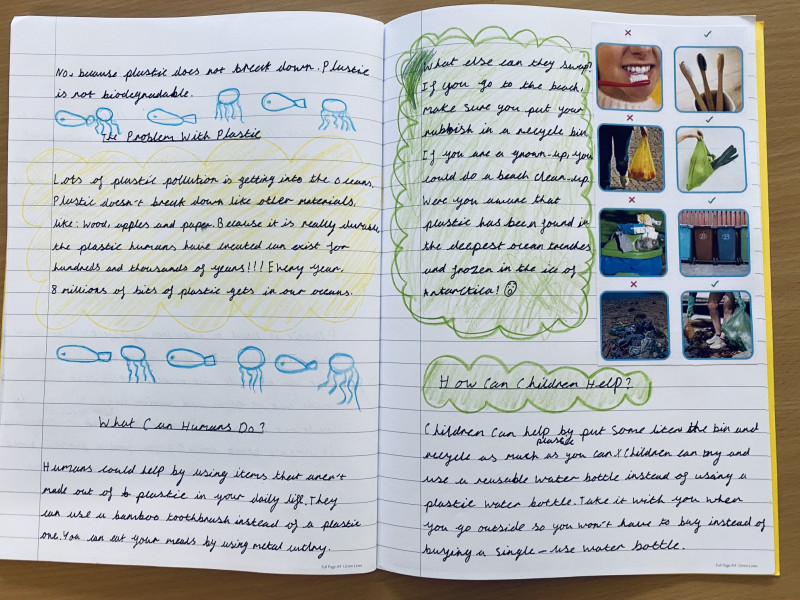 No, because plastic does not break down. Plastic
is not biodegradable.
The Problem With Plastic
Lots of plastic pollution is getting into the oceans.
Plastic doesn't break down like other materials,
like: wood, apples and paper. Because it is really durable,
the plastic humans have created can exist for
hundreds and thousands of years!!! Every year,
8 millions of bits of plastic gets in our oceans.
What Can Humans Do?
Humans could help by using items that aren't
made out of plastic in your daily life. They
can use a bamboo toothbrush instead of a plastic
one. You can eat your meals by using metal cutlry.
Full Page A4 12mm Lines
What else can they swap?
If you go to the beach,
make sure you put your
rubbish in a recycle bin.
If you are a grown-up, you
could do a beach clean-up.
Were you aware that
plastic has been found in
the deepest ocean trenches
and frozen in the ice of
Antarctica!
How Can Children Help?
Children can help by put some liter in the bin and
recycle as much plastic as you can. Children can buy and
use a reusable water bottle instead of using a
plastic water bottle. Take it with you when
you go outside so you won't have to buy instead of
buying a single-use water bottle.
Full Page A4 12mm Lines